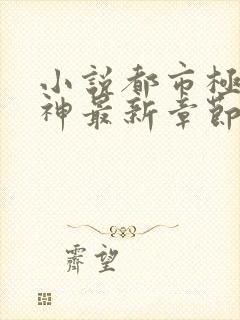 小說都市極
神最新章節
霽望